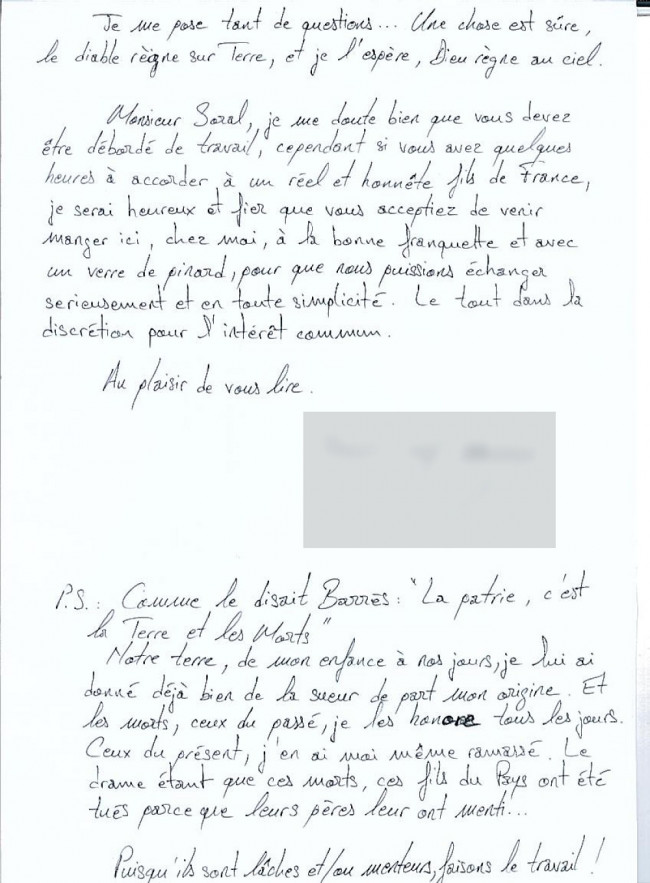 Je me pose tant de questions... Une chose est sûre,
le diable règne sur Terre, et je l'espère, Dieu règne au ciel.
Monsieur Soral, je me doute bien que vous devez
être débordé de travail, cependant si vous avez quelques
heures à accorder à un réel et honnête fils de France,
je serai heureux et fier que vous acceptiez de venir
manger ici, chez moi, à la bonne franquette et avec
un verre de pinard, pour que nous puissions échanger
serieusement et en toute simplicité. Le tout dans la
discrétion pour l'intérêt commun.
Au plaisir de vous lire.
P.S.: Comme le disait Barrès: "La patrie, c'est
la Terre et les Morts"
Notre terre, de mon enfance à nos jours, je lui ai
donné déjà bien de la sueur de part mon origine. Et
les morts, ceux du passé, je les honore tous les jours.
Ceux du présent, j'en ai moi même ramassé. Le
drame étant que ces morts, ces fils du Pays ont été
tués parce que leurs pères leur ont menti...
Puisqu'ils sont lâches et/ou menteurs, faisons le travail!